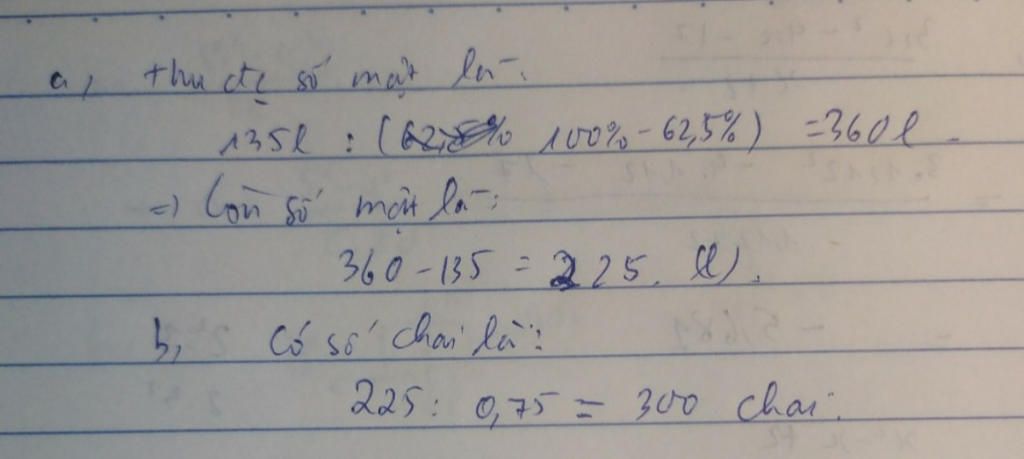 a, thu đc số mật là:
135l : (62,5% 100% - 62,5%) = 360l
=> Còn số mật là:
360 - 135 = 225 (l).
b, Có số chai là:
225 : 0,75 = 300 chai.